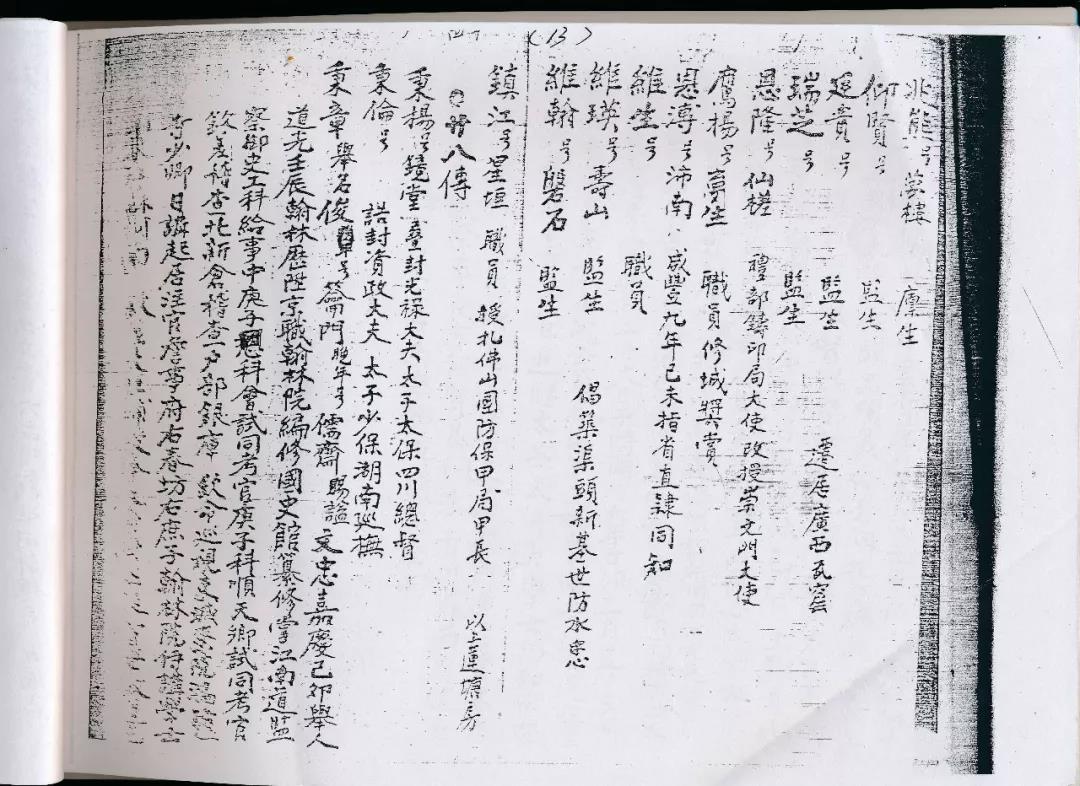 (13)
兆熊号夢樓 廩生
仰賢号 監生
廷貴号 監生 遷居廣西瓦窰
瑞芝号 監生
恩隆号仙槎 禮部鑄印局大使改授崇文門大使
鷹楊号 職員修城獎賞
恩溥号沛南 咸豐九年己未指省直隸同知
維生号 職員
維瑛号壽山 監生 倡築渠頭新基世防水患
維翰号磐石 監生
鎮江号星垣 職員 授札佛山團防保甲局甲長 以上蓮塘房
八傳
秉楊号鏡堂 封光祿大夫太子太保四川總督
秉倫号 誥封資政大夫太子少保湖南巡撫
秉章舉名俊 号籲門晚年号儒齋賜諡文忠嘉慶己卯舉人
道光壬辰翰林歷陞京職翰林院編修國史館纂修掌江南道監
察御史工科給事中庚子恩科會試同考官庚子科順天鄉試同考官
欽差稽查北新倉稽查户部銀庫 欽命巡視
寺少卿日講起居注官詹事府右春坊右庶子翰林院侍講學士